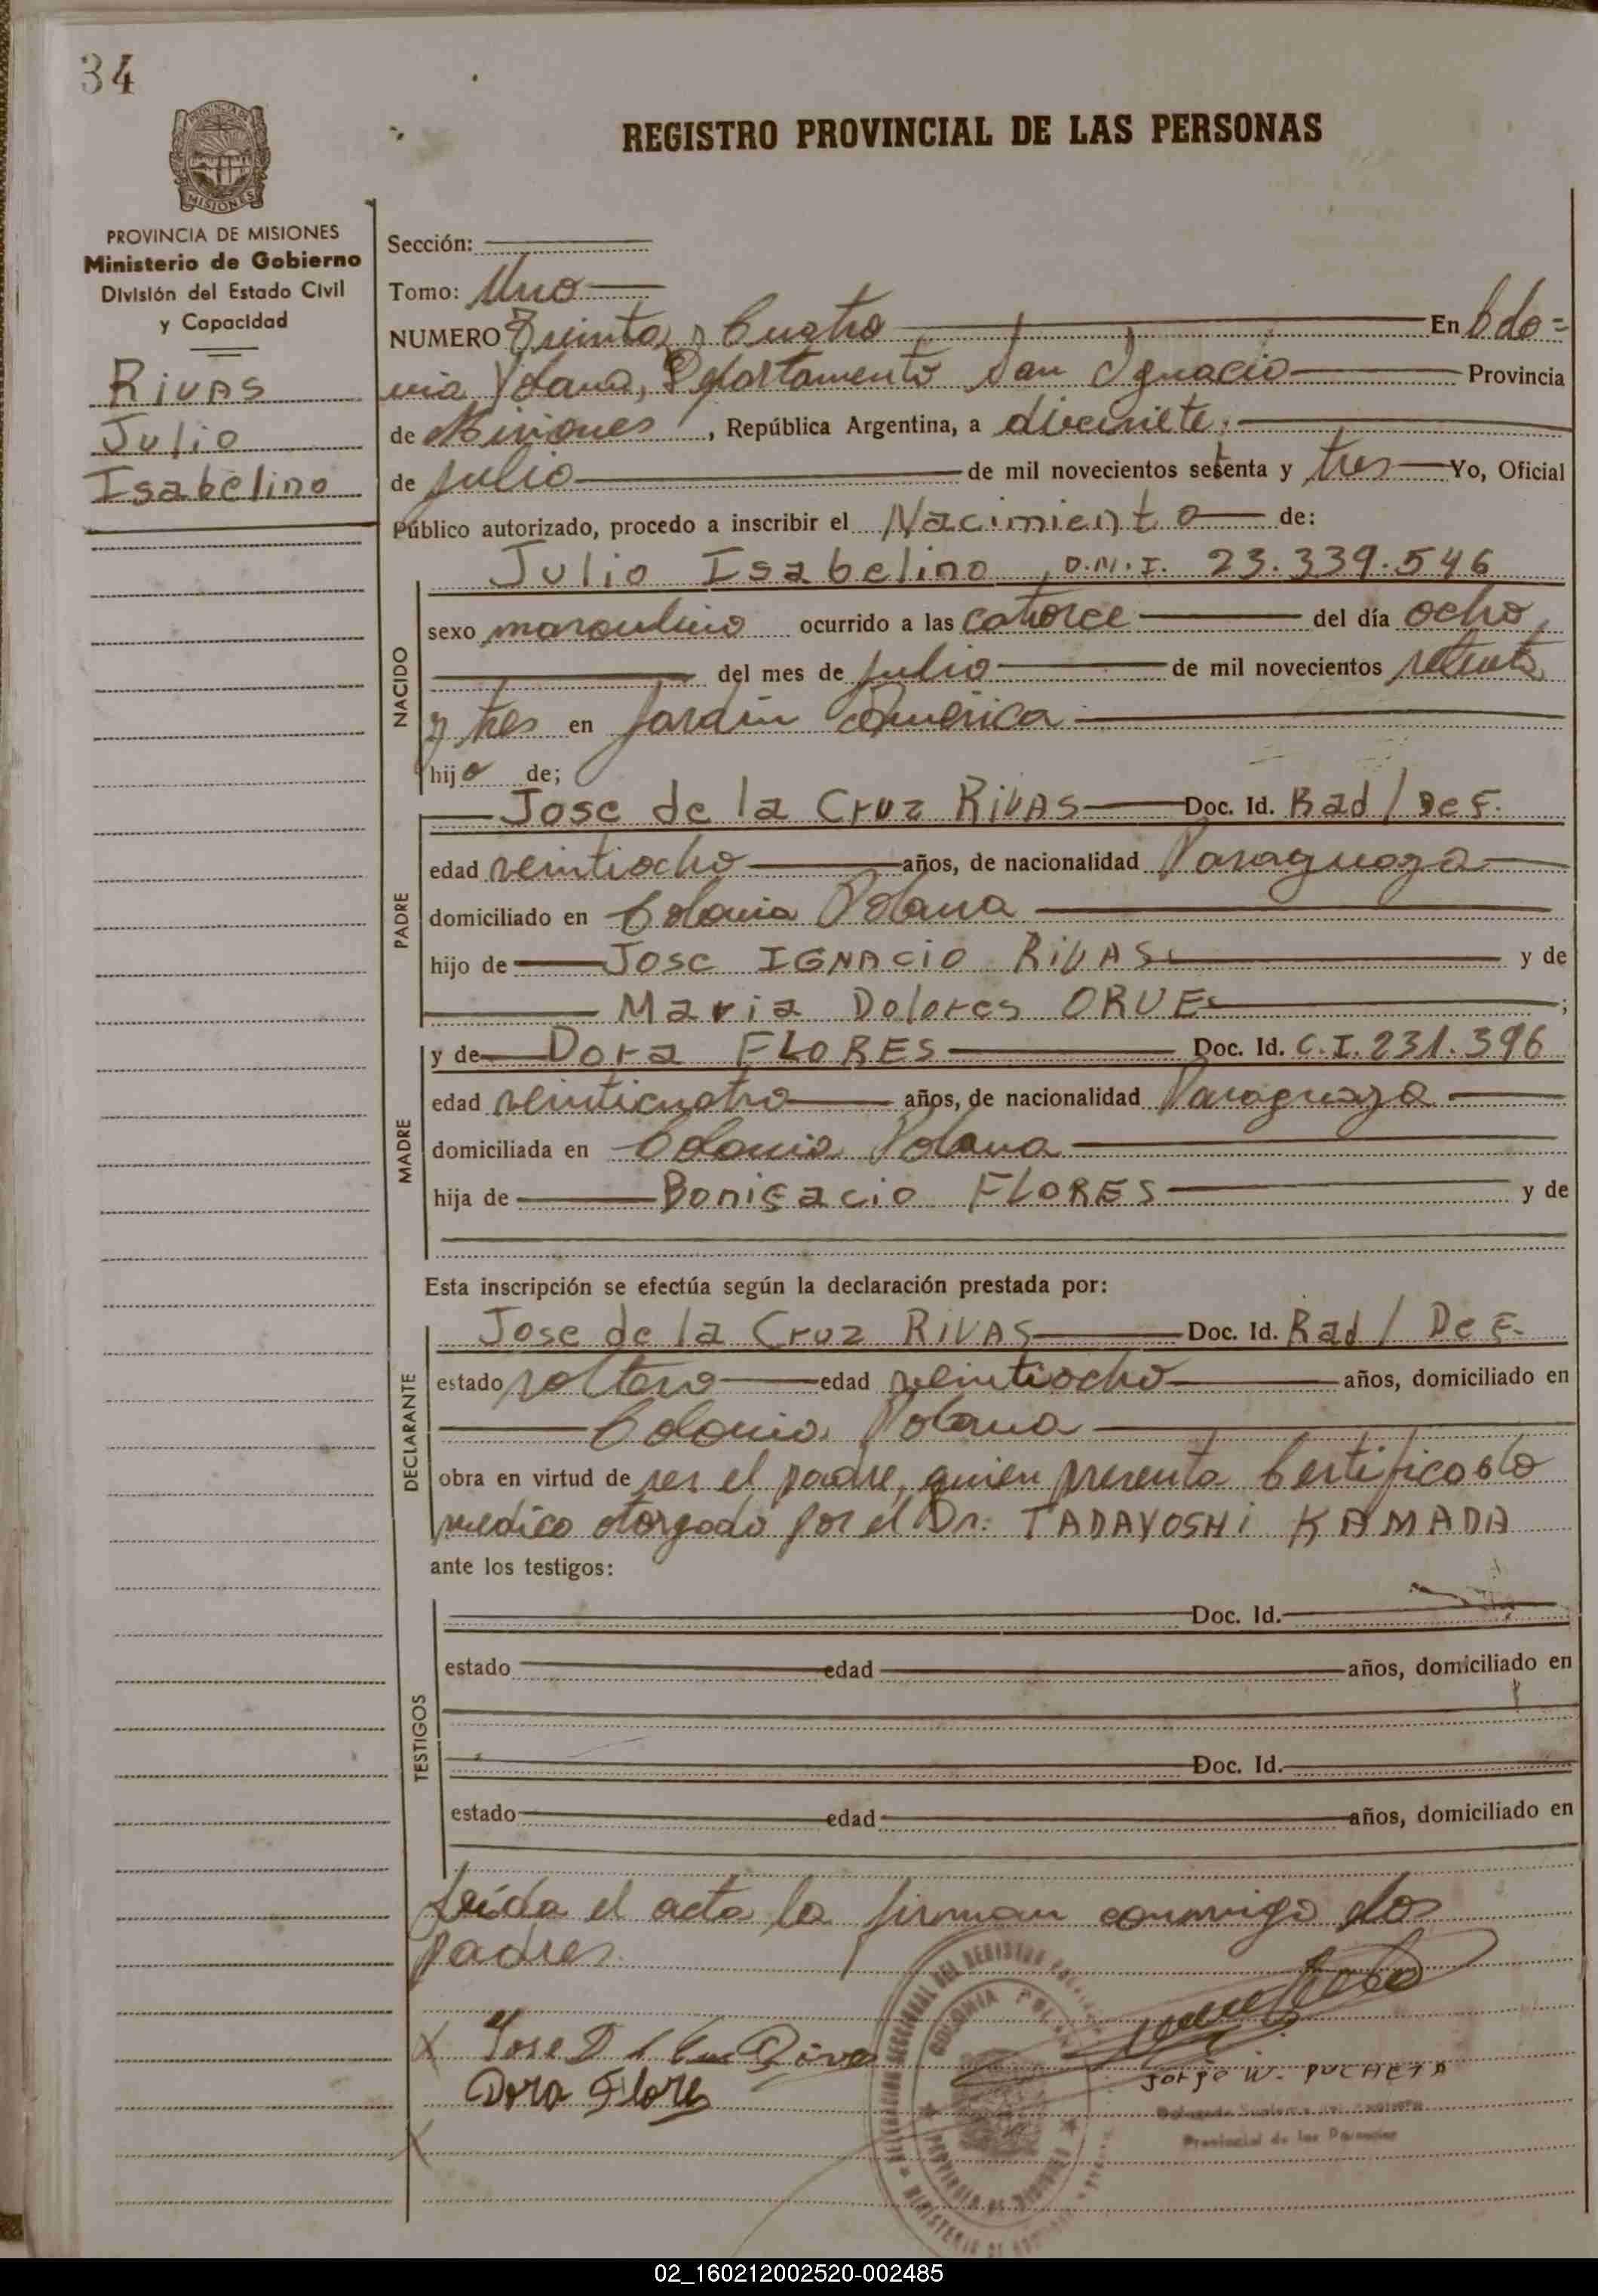 34
REGISTRO PROVINCIAL DE LAS PERSONAS
PROVINCIA DE MISIONES
MISIONES
PROVINCIA DE MISIONES
Ministerio de Gobierno
División del Estado Civil
y Capacidad
RIVAS
Julio
Isabelino
Sección:
Tomo: Uno
NUMERO Treinta y Cuatro En Colo=
nia Polana, Departamento San Ignacio Provincia
de Misiones, República Argentina, a diecisiete
de julio de mil novecientos setenta y tres Yo, Oficial
Público autorizado, procedo a inscribir el Nacimiento de:
Julio Isabelino, D.N.I. 23.339.546
NACIDO
sexo masculino ocurrido a las catorce del día ocho
del mes de julio de mil novecientos setenta
y tres en Jardín América
hijo de;
PADRE
Jose de la Cruz RIVAS Doc. Id. Rad/Def.
edad veintiocho años, de nacionalidad Paraguaya
domiciliado en Colonia Polana
hijo de Jose IGNACIO RIVAS y de
Maria Dolores ORUE ;
MADRE
y de Dora FLORES Doc. Id. C.I. 231.396
edad veinticuatro años, de nacionalidad Paraguaya
domiciliada en Colonia Polana
hija de Bonifacio FLORES y de
Esta inscripción se efectúa según la declaración prestada por:
DECLARANTE
Jose de la Cruz RIVAS Doc. Id. Rad/Def.
estado soltero edad veintiocho años, domiciliado en
Colonia Polana
obra en virtud de ser el padre, quien presenta Certificado
medico otorgado por el Dr. TADAYOSHI KAMADA
ante los testigos:
TESTIGOS
Doc. Id.
estado edad años, domiciliado en
Doc. Id.
estado edad años, domiciliado en
Leída el acta la firman conmigo los
padres.
X Jose D l Cruz Rivas
Dora Flores
X
Jorge W. PUCHETA
Provincial de las Personas
COLONIA POLANA
PROVINCIA DE MISIONES
02_160212002520-002485